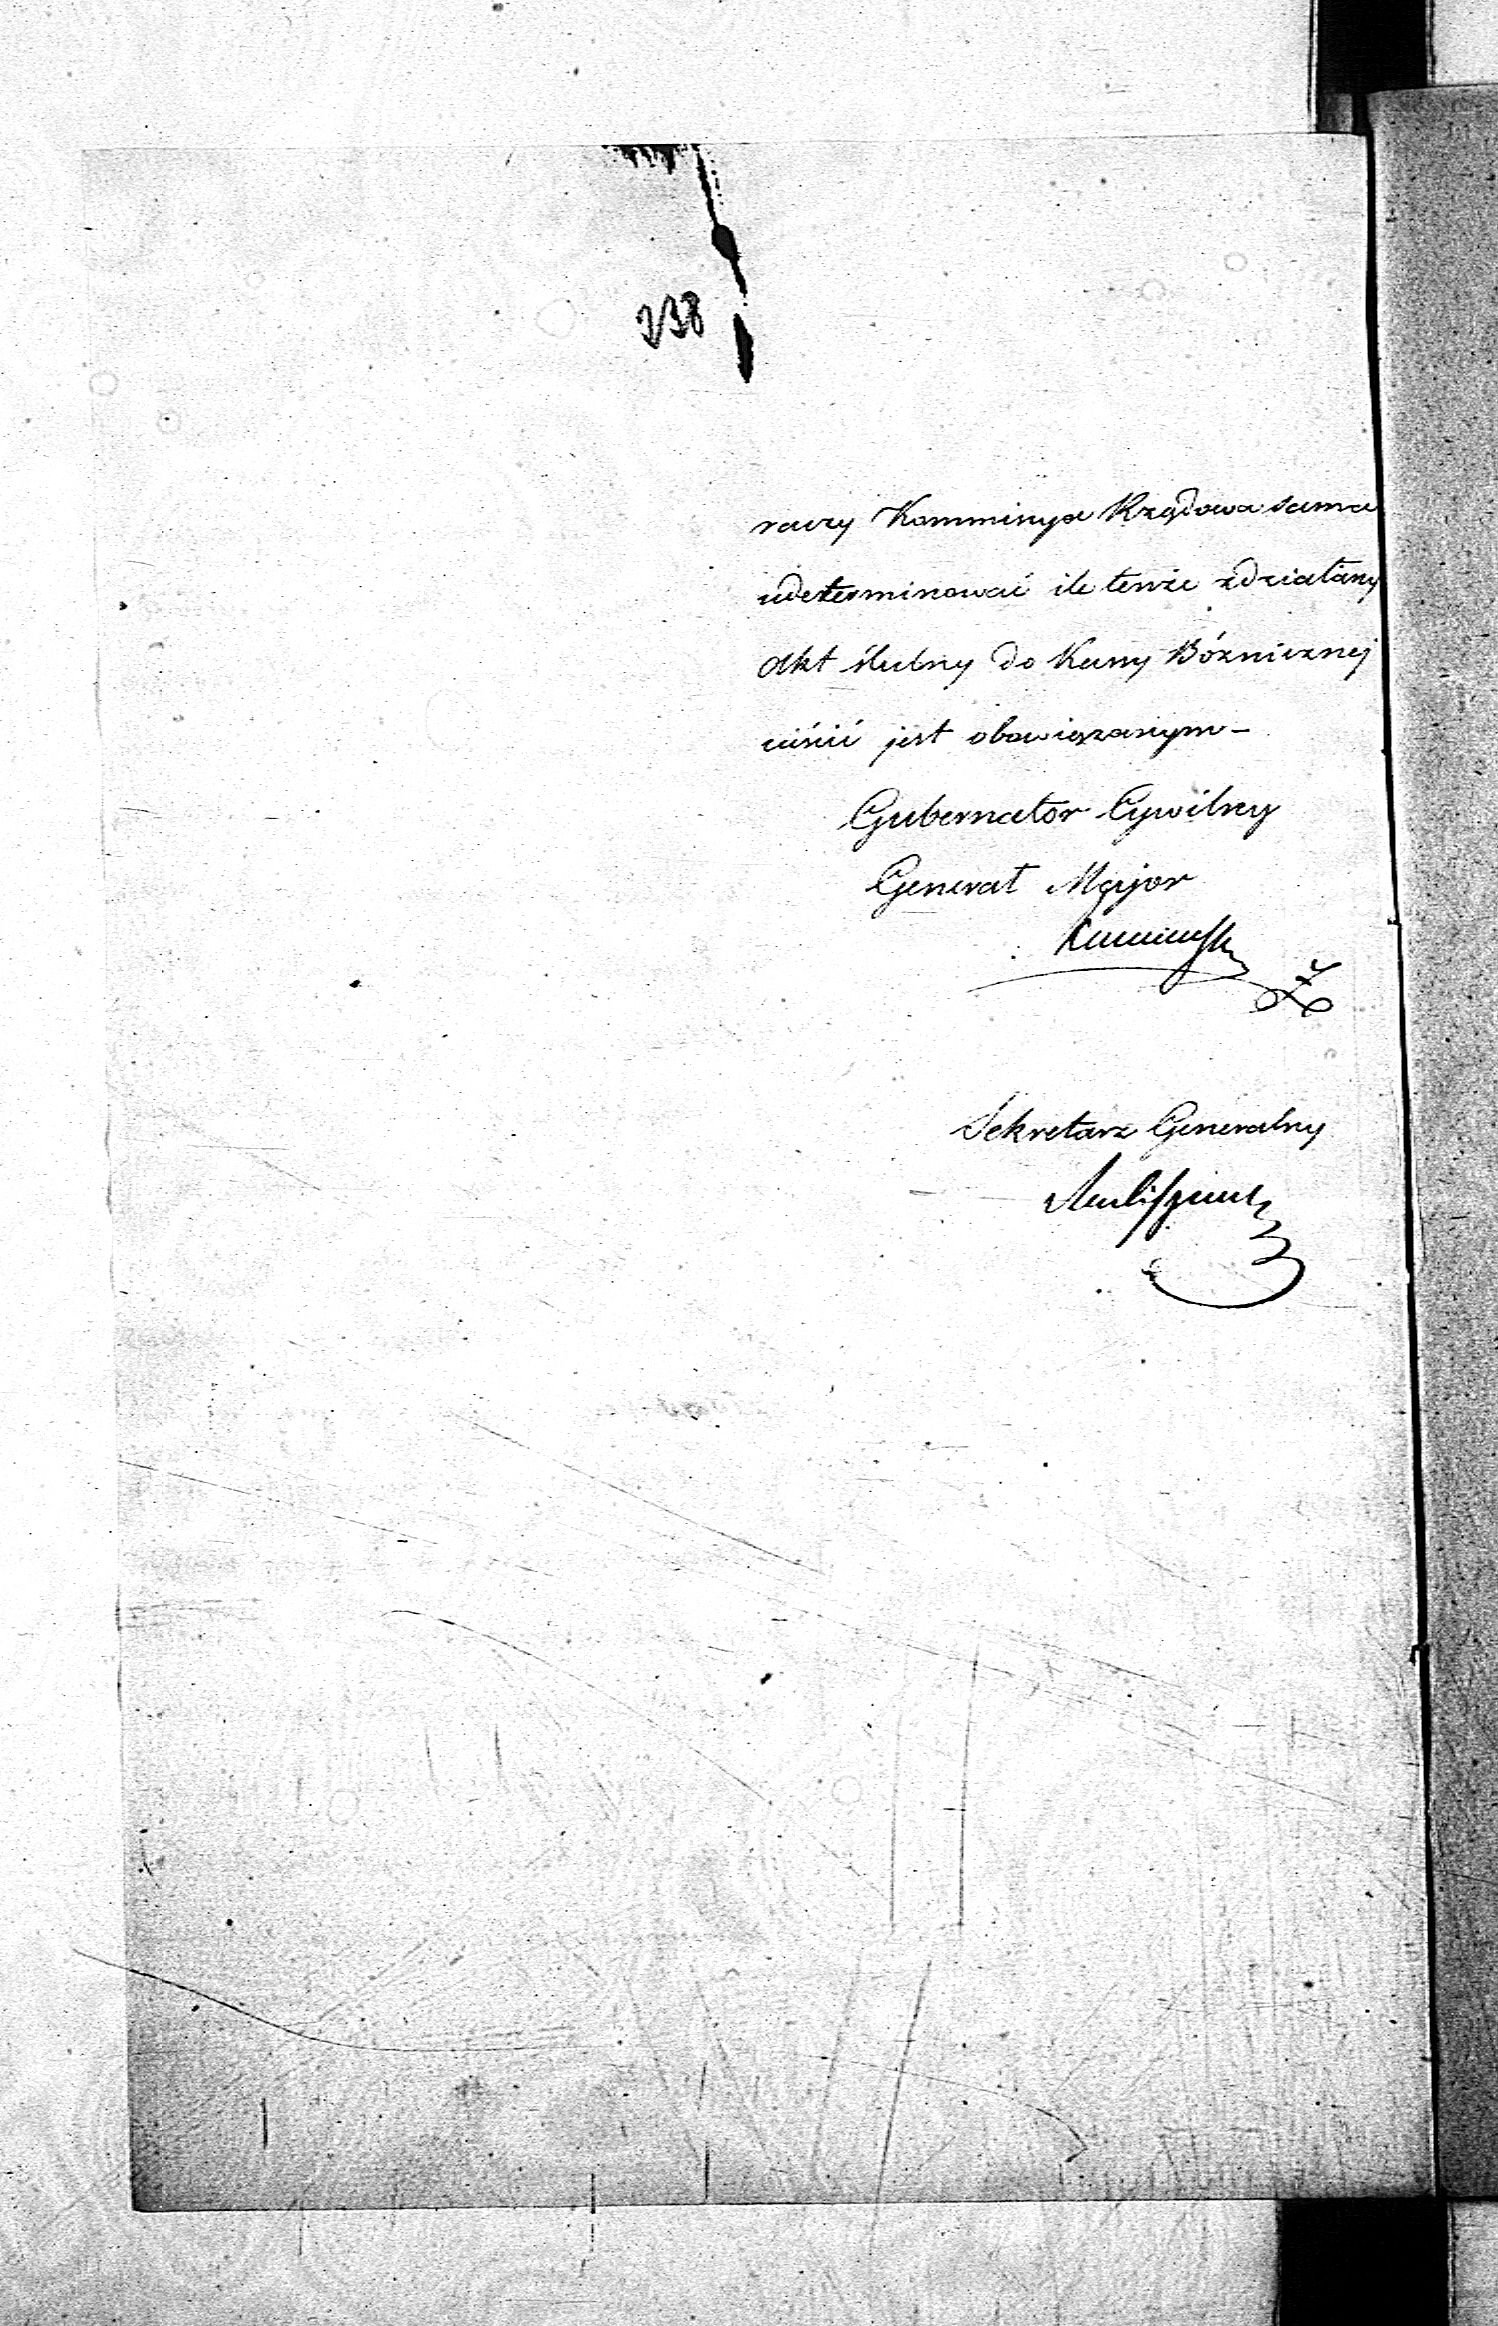 238
raczy Kommissya Rządowa sama
udeterminować ile tenże zdziałany
akt ślubny do Kassy Bóżnicznej
uiścić jest obowiązanym –
Gubernator Cywilny
Generał Major
Sekretarz Generalny